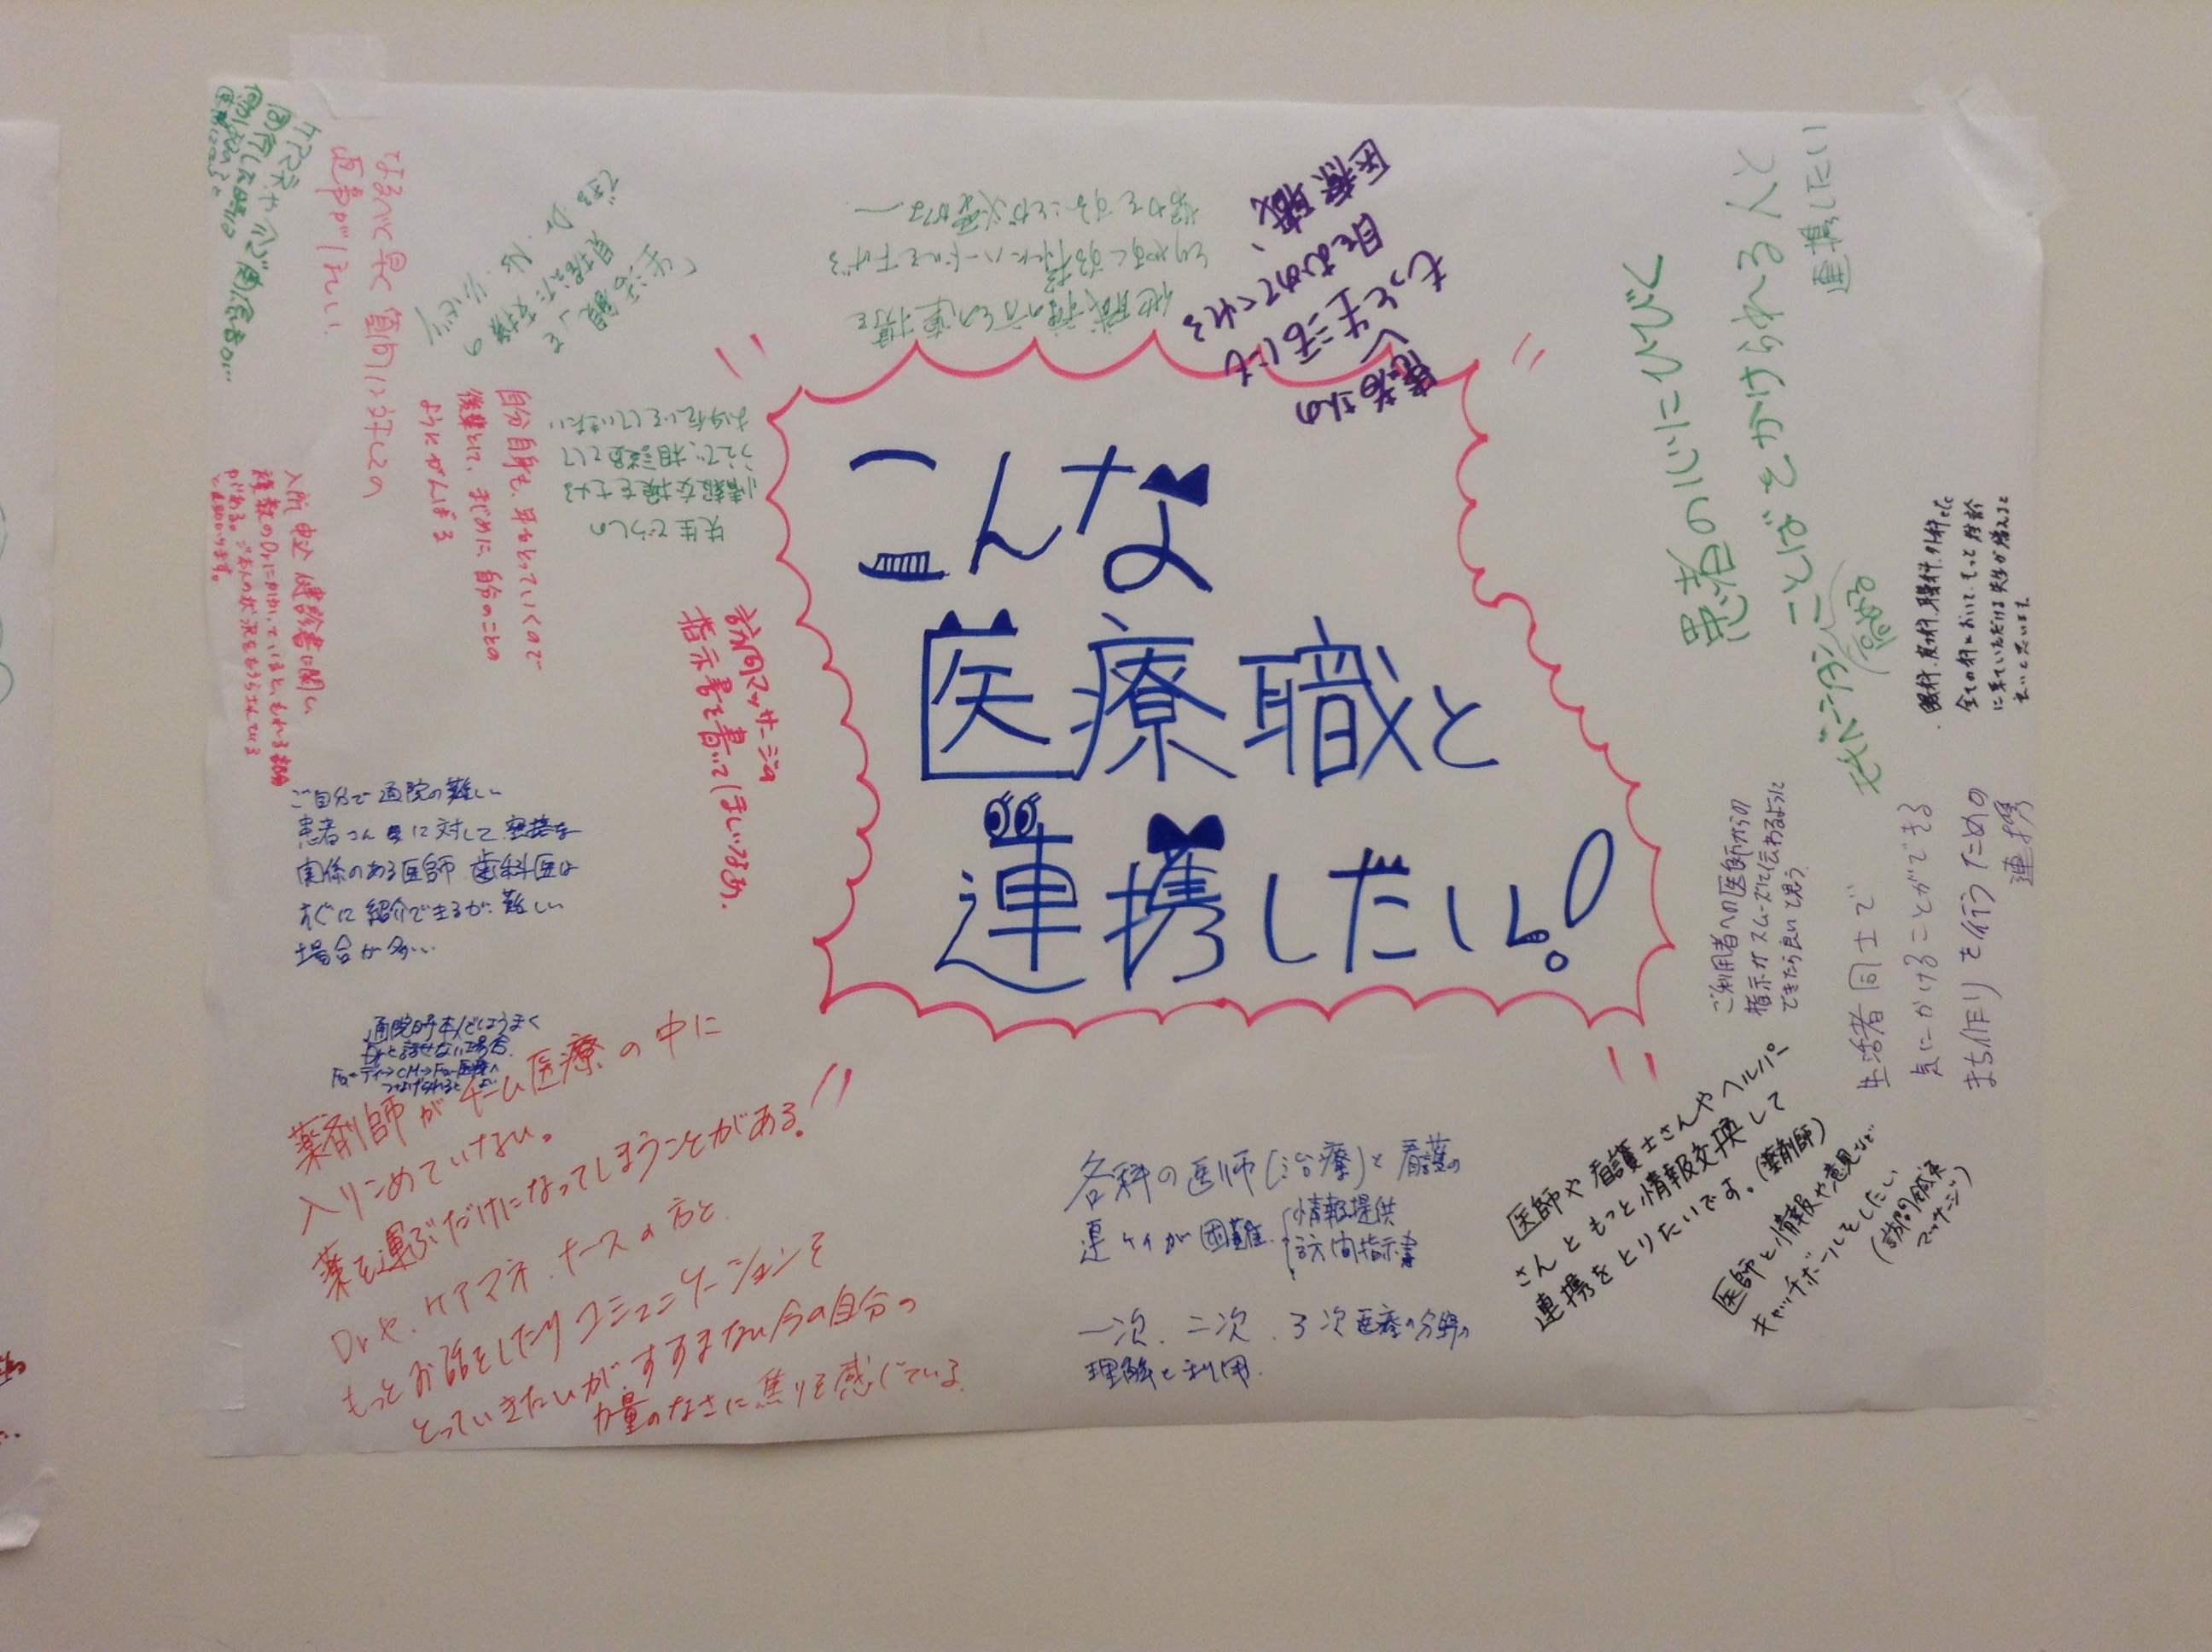 こんな
医療職と
連携したい!
患者さんの
もっと生活にも
目をむけてくれる
医療職、
他職種の方との連携を
とりやすくする為にハードルを下げる
努力をすることが必要かな
「生活層」を
見据えた支援の
できる Dr. Ns. リハビリ
先生どうしの
情報交換をする
うえで、相談員として
お手伝いをしていきたい
ケアマネや
なるべく早く質問に対しての
返事がほしい
自分自身も、年をとっていくので
後輩として、まじめに自分のことの
ようにがんばる
入所申込 健診書に関し
複数のDrにかかっていると、もれる事も
訪問マッサージの
指示書を書いてほしいなあ。
ご自分で通院の難しい
患者さんに対して、密接な
関係のある医師、歯科医は
すぐに紹介できるが、難しい
場合が多い
通院時本人ではうまく
Drと話せない場合、
薬剤師がチーム医療の中に
入りこめていない。
薬を運ぶだけになってしまうことがある。
Drや、ケアマネ、ナースの方と
もっとお話をしたりコミュニケーションを
とっていきたいが、すすまない今の自分の
力量のなさに焦りを感じている
各科の医師(治療)と看護の
連ケイが困難
情報提供
訪問指示書
一次、二次、3次医療の分野の
理解と利用.
医師や看護士さんやヘルパー
さんともっと情報交換して
連携をとりたいです。(薬剤師)
医師と情報や意見など
キャッチボールをしたい
(訪問鍼灸
マッサージ)
ご利用者への医師からの
指示がスムーズに伝わるように
できたら良いと思う
生活者同士で
気にかけることができる
まち作りを行うための
連携
患者の心にひびく
ことばをかけられる人と
連携したい
モチベーション
高める
・眼科、皮フ科、耳鼻科、外科etc
全ての科において、もっと往診
に来ていただける先生が増えると